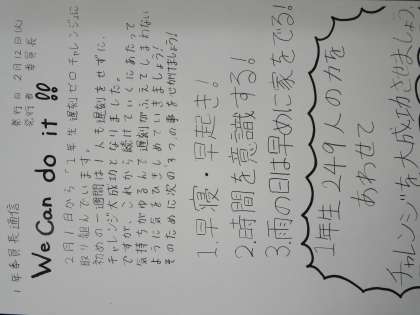 1年委員長通信
発行日 2月12日(火)
発行者 委員長
We Can do it!!
2月1日から「1年生遅刻ゼロチャレンジ」に
取り組んでいます。
初めの一週間は1人も遅刻をせずに、
チャレンジ大成功となりました。
ですが、これから続けていくにあたって
気持ちがゆるんで遅刻がふえてしまわない
ように気をひきしめていきましょう!
そのために次の3つの事を心がけましょう!
1.早寝・早起き!
2.時間を意識する!
3.雨の日は早めに家をでる!
1年生249人の力を
あわせて
チャレンジを大成功させましょう!